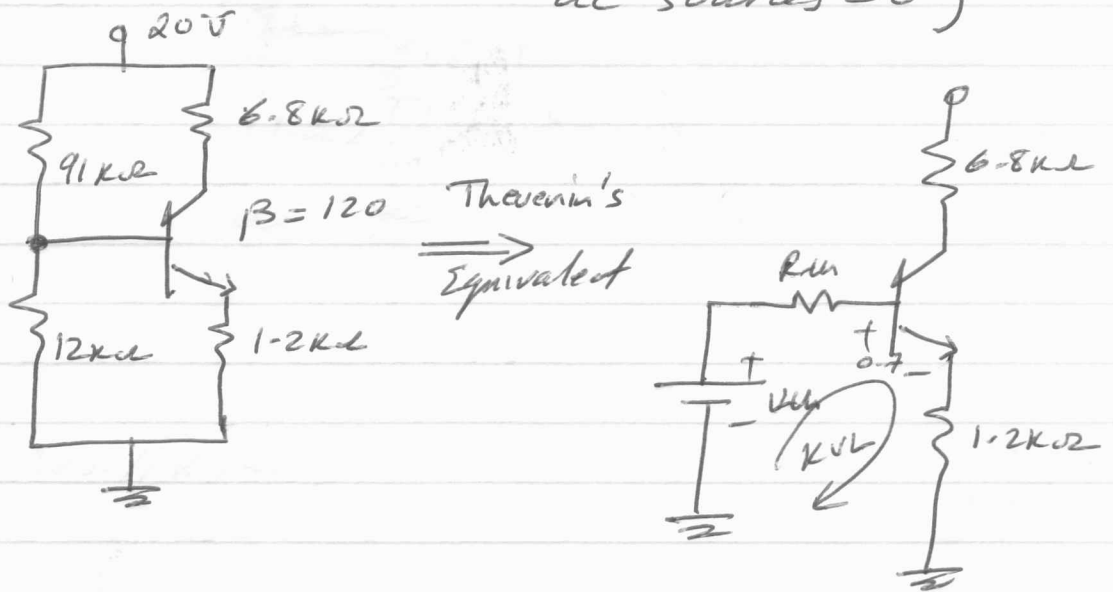 dc sources = 0 )
20V
6.8KΩ
91KΩ
β = 120
12KΩ
1.2KΩ
Thevenin's
Equivalent
6.8KΩ
Rth
+
0.7
-
+
Vth
-
KVL
1.2KΩ